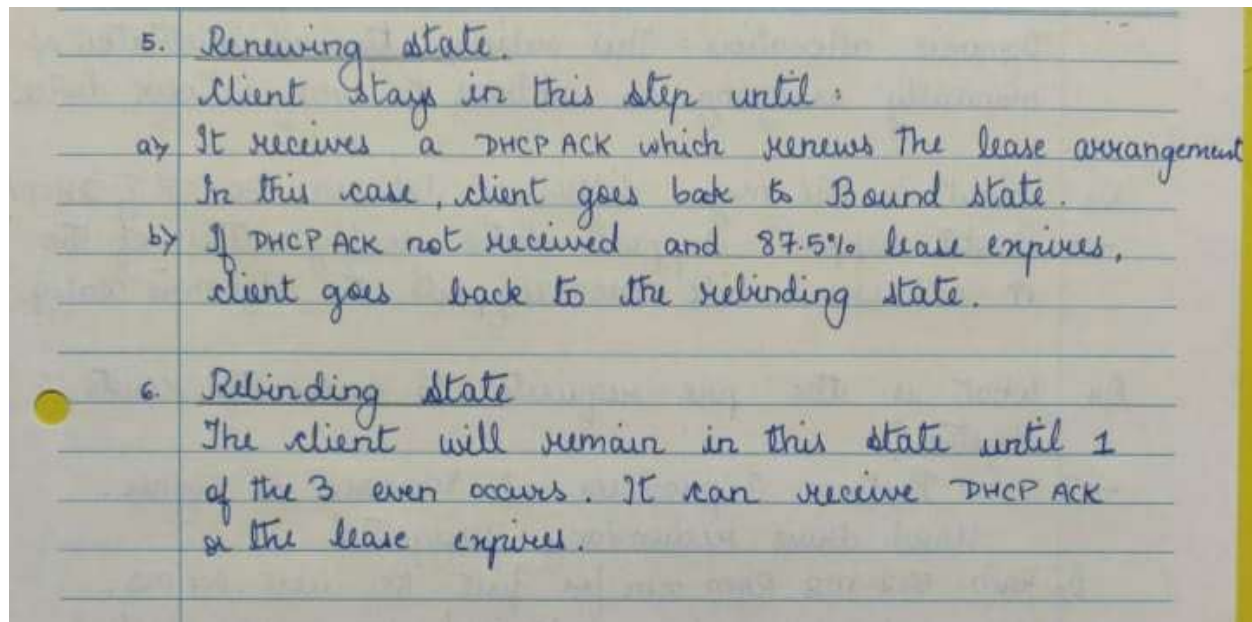 5. Renewing state.
Client stays in this step until :
a> It receives a DHCP ACK which renews the lease arrangement
In this case, client goes back to Bound state.
b> If DHCP ACK not received and 87.5% lease expires,
client goes back to the rebinding state.
6. Rebinding state
The client will remain in this state until 1
of the 3 even occurs. It can receive DHCP ACK
or the lease expires.